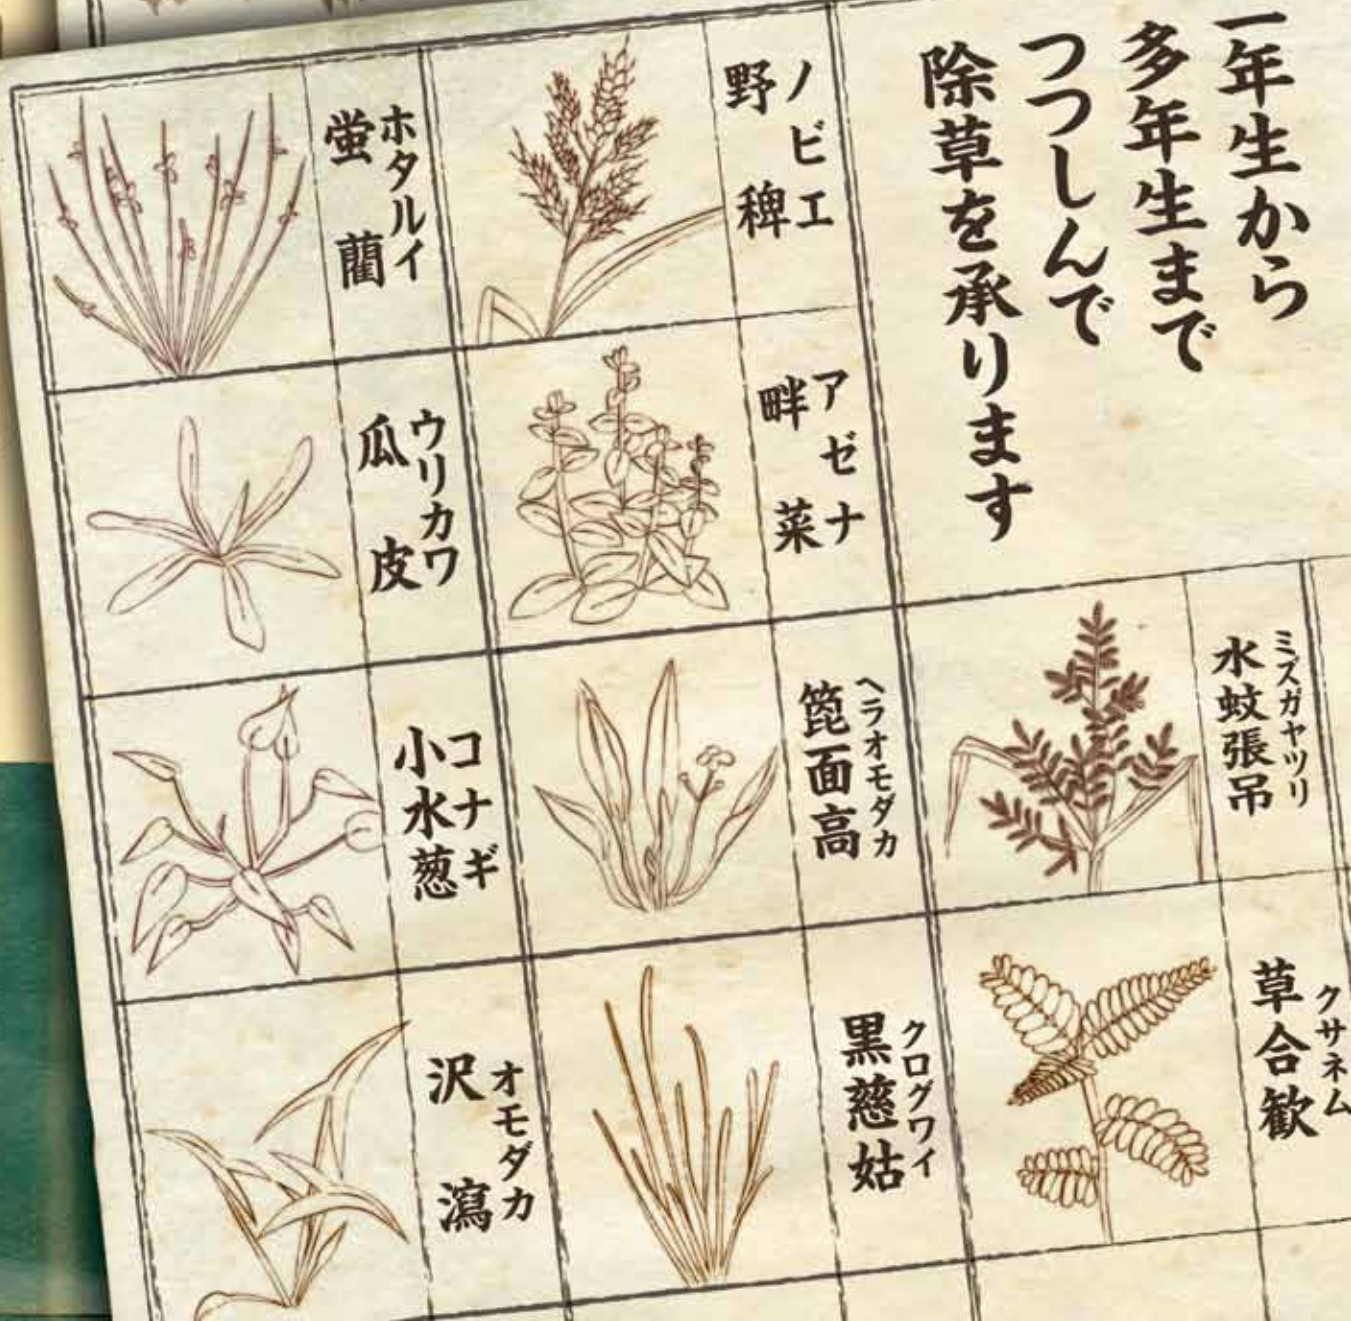 一年生から
多年生まで
つつしんで
除草を承ります
ノビエ
野稗
ホタルイ
蛍藺
アゼナ
畔菜
ウリカワ
瓜皮
ミズガヤツリ
水蚊張吊
ヘラオモダカ
箆面高
コナギ
小水葱
クサネム
草合歓
クログワイ
黒慈姑
オモダカ
沢瀉